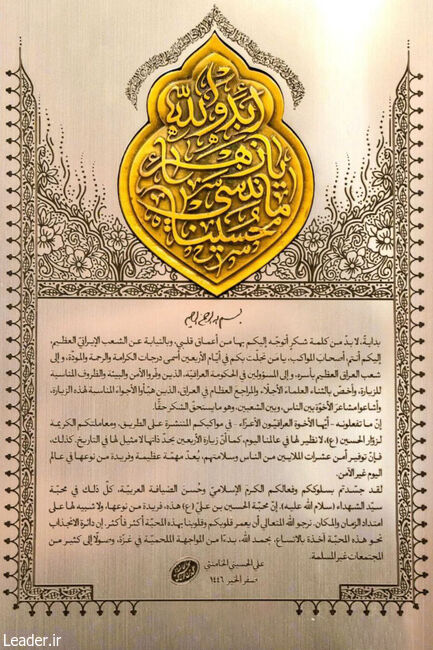 ابد والله
يا زهراء
ما ننسى
حسيناه
بدايةً، لا بدّ من كلمة شكر أتوجّه إليكم بها من أعماق قلبي، وبالنيابة عن الشعب الإيرانيّ العظيم،
إليكم أنتم، أصحاب المواكب، يا من تجلّت بكم في أيّام الأربعين أسمى درجات الكرامة والرحمة والمودّة، وإلى
شعب العراق العظيم بأسره، وإلى المسؤولين في الحكومة العراقيّة، الذين وفّروا الأمن والبيئة والظروف المناسبة
للزيارة، وأخصّ بالثناء العلماء الأجلّاء، والمراجع العظام في العراق، الذين هيّأوا الأجواء المناسبة لهذه الزيارة،
وأشاعوا مشاعر الأخوّة بين الناس، وبين الشعبين، وهو ما يستحقّ الشكر حقًّا.
إنّ ما تفعلونه - أيّها الأخوة العراقيّون الأعزّاء - في مواكبكم المنتشرة على الطريق، ومعاملتكم الكريمة
لزوّار الحسين (ع)، لا نظير لها في عالمنا اليوم، كما أنّ زيارة الأربعين بحدّ ذاتها لا مثيل لها في التاريخ. كذلك،
فإنّ توفير أمن عشرات الملايين من الناس وسلامتهم، يُعدّ مهمّة عظيمة وفريدة من نوعها في عالم
اليوم غير الآمن.
لقد جسّدتم بسلوككم وفعالكم الكرم الإسلاميّ وحُسن الضيافة العربيّة، كلّ ذلك في محبّة
سيّد الشهداء (سلام الله عليه). إنّ محبّة الحسين بن عليّ (ع) هذه، فريدة من نوعها ولا شبيه لها على
امتداد الزمان والمكان. نرجو الله المتعالي أن يعمر قلوبكم وقلوبنا بهذه المحبّة أكثر فأكثر. إن دائرة الانجذاب
نحو هذه المحبّة آخذة بالاتساع، بحمد الله، بدءًا من المواجهة الملحميّة في غزّة، وصولًا إلى كثير من
المجتمعات غير المسلمة.
علي الحسيني الخامنئي
صفر الخير ١٤٤٦
Leader.ir